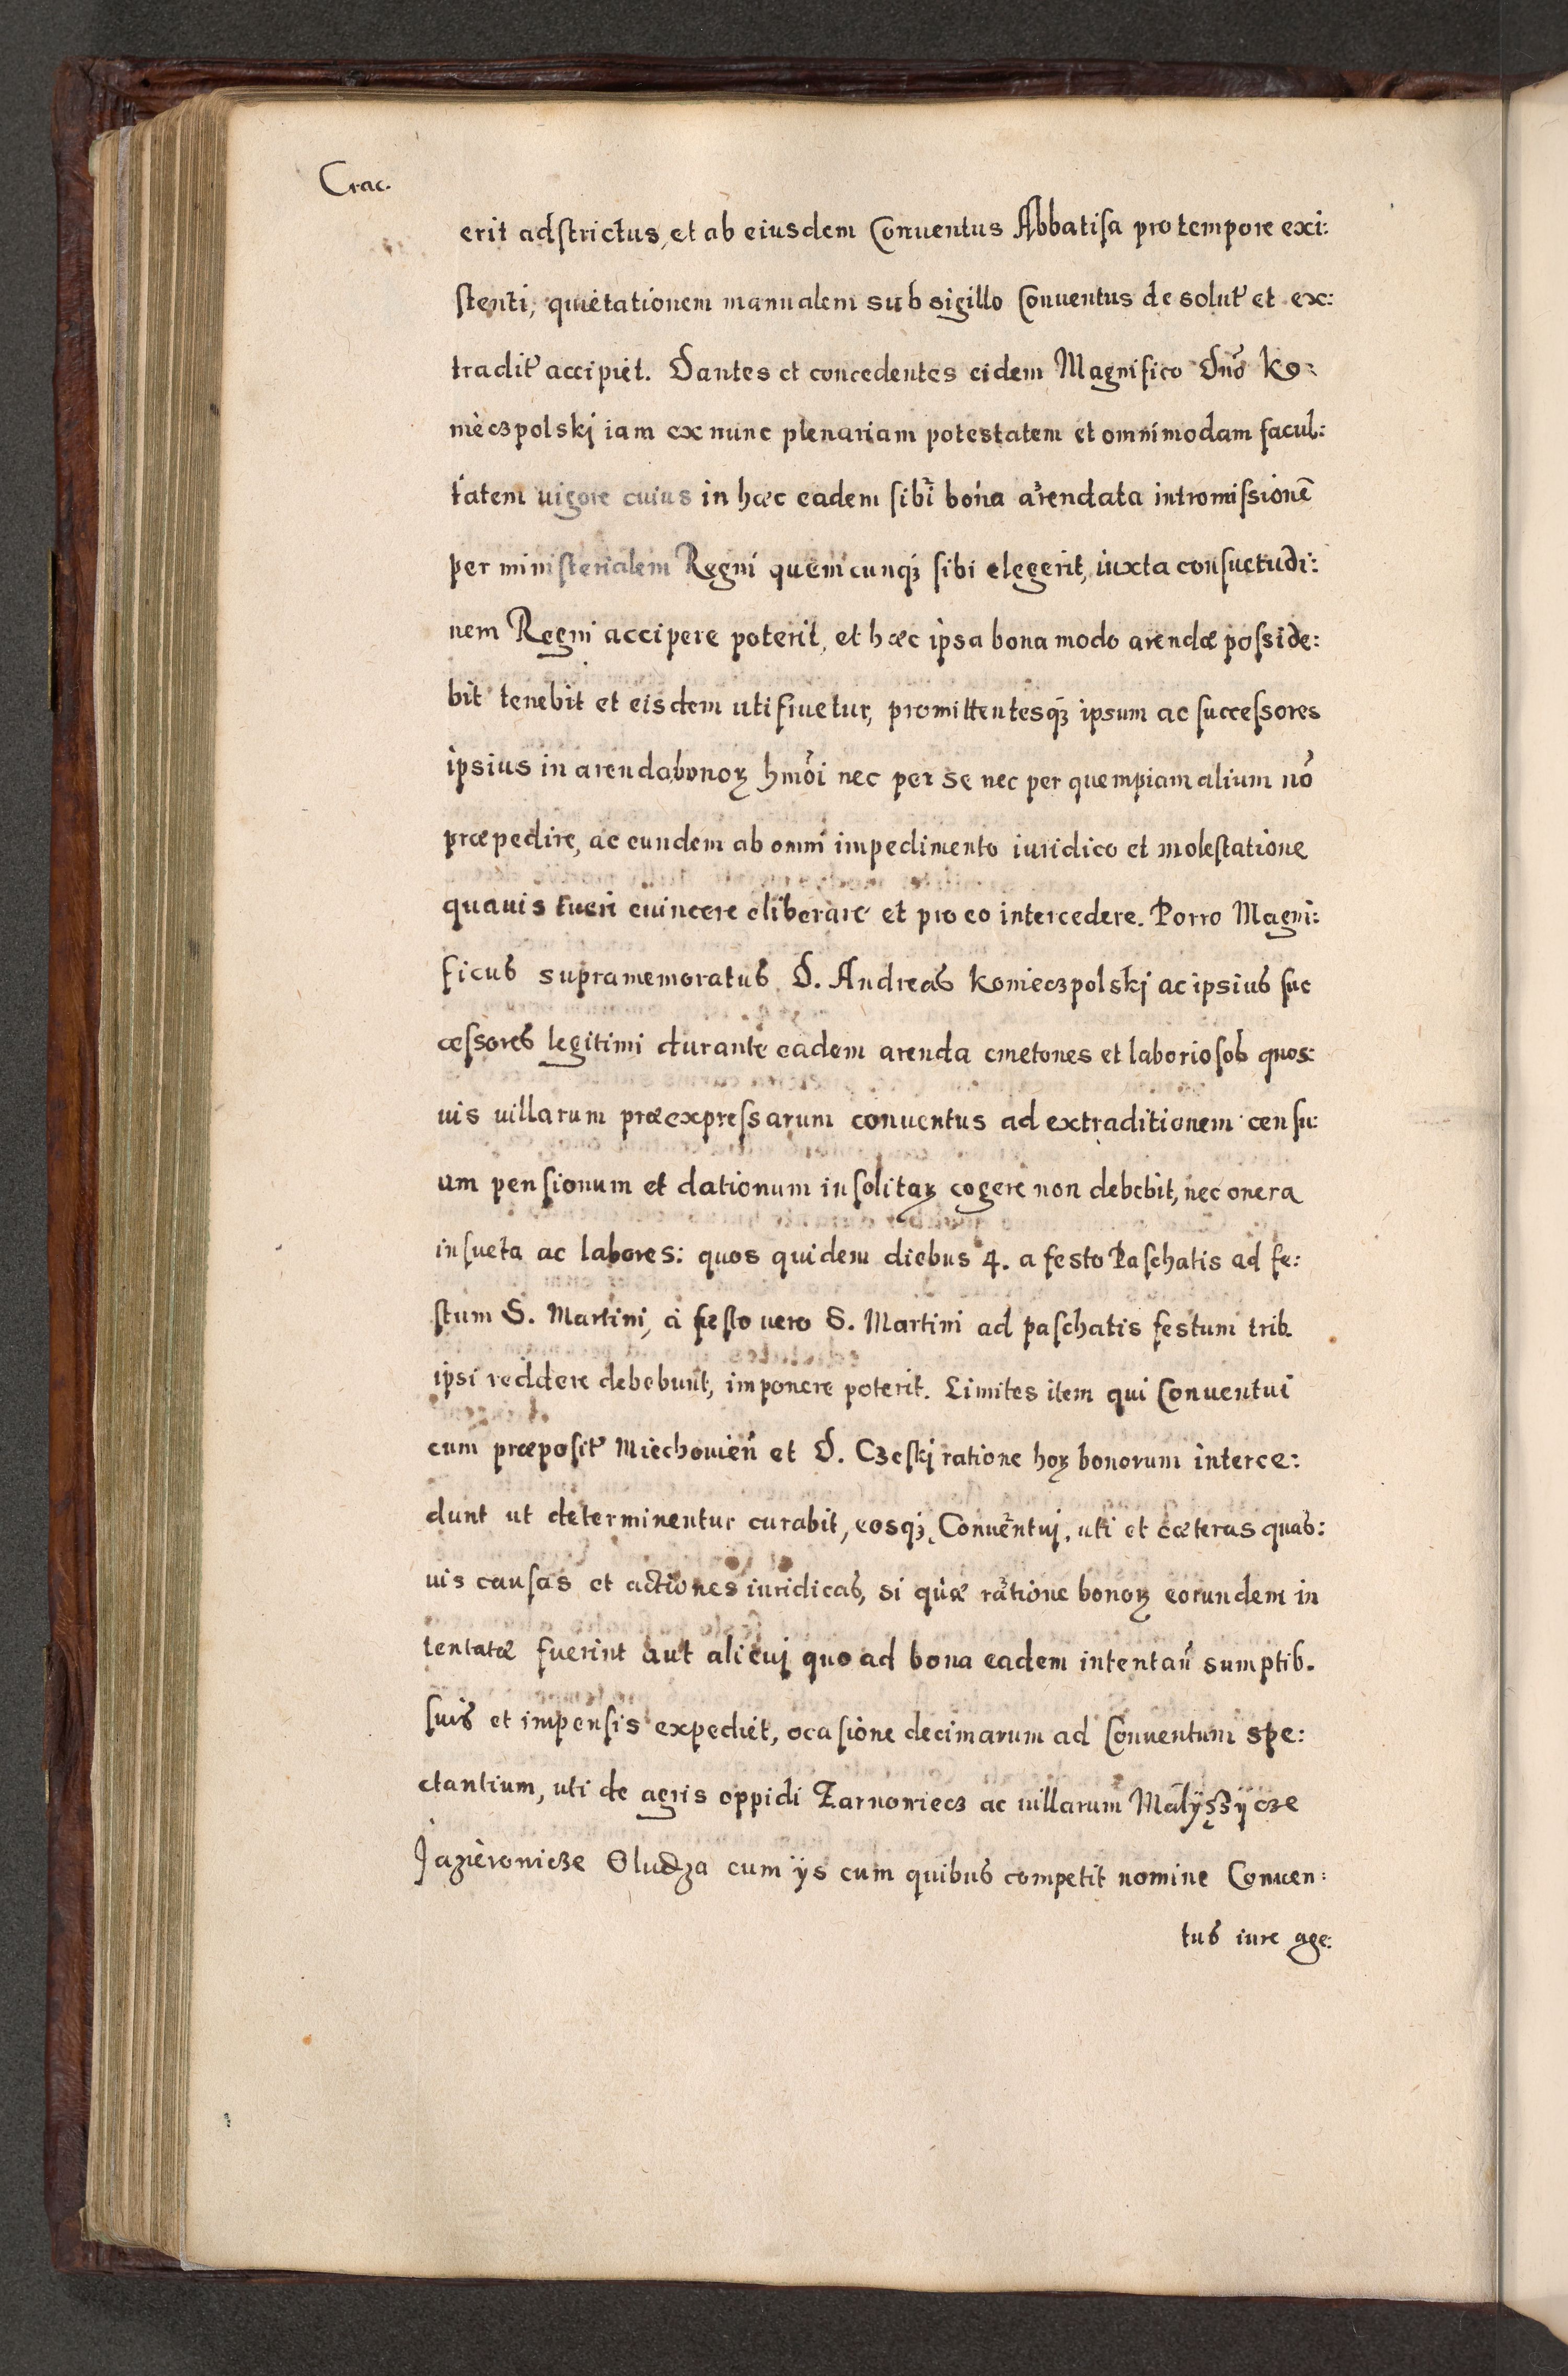 Crac.
erit adstrictus, et ab eiusdem Conuentus Abbatisa pro tempore exi:
stenti, quietationem manualem sub sigillo Conuentus de solut̃ et ex:
tradit̃ accipiet. Dantes et concedentes eidem Magnifico Dnõ Ko:
nieczpolskj iam ex nunc plenariam potestatem et omnimodam facul:
tatem uigore cuius in hæc eadem sibi bona arendata intromissionẽ
per ministerialem Regni quemcunqꝫ sibi elegerit, iuxta consuetudi:
nem Regni accipere poterit, et hæc ipsa bona modo arendæ posside:
bit tenebit et eisdem utifruetur, promittentesqꝫ ipsum ac successores
ipsius in arenda bonoꝝ hmõi nec per se nec per quempiam alium nõ
præpedire, ac eundem ab omni impedimento iuridico et molestatione
quauis tueri euincere eliberare et pro eo intercedere. Porro Magni:
ficus supramemoratus D. Andreas Konieczpolskj ac ipsius suc
cessores legitimi durante eadem arenda cmetones et laboriosos quos:
uis uillarum præexpressarum conuentus ad extraditionem censu:
um pensionum et dationum insolitaꝝ cogere non debebit, nec onera
insueta ac labores: quos quidem diebus 4. a festo Paschatis ad fe:
stum S. Martini, a festo uero S. Martini ad paschatis festum trib.
ipsi reddere debebunt, imponere poterit. Limites item qui Conuentui
cum præposit̃ Miechouien̄ et D. Czeskj ratione hoꝝ bonorum interce:
dunt ut determinentur curabit, eosqꝫ Conuentuj, uti et cæteras quas:
uis causas et actiones iuridicas, si quæ ratione bonoꝝ eorundem in
tentatæ fuerint aut alicuj quo ad bona eadem intentañ sumptib.
suis et impensis expediet, ocasione decimarum ad Conuentum spe:
ctantium, uti de agris oppidi Zarnowiecz ac uillarum Malÿszÿcze
Jazierowicze Sludza cum ÿs cum quibus competit nomine Conuen:
tus iure age: